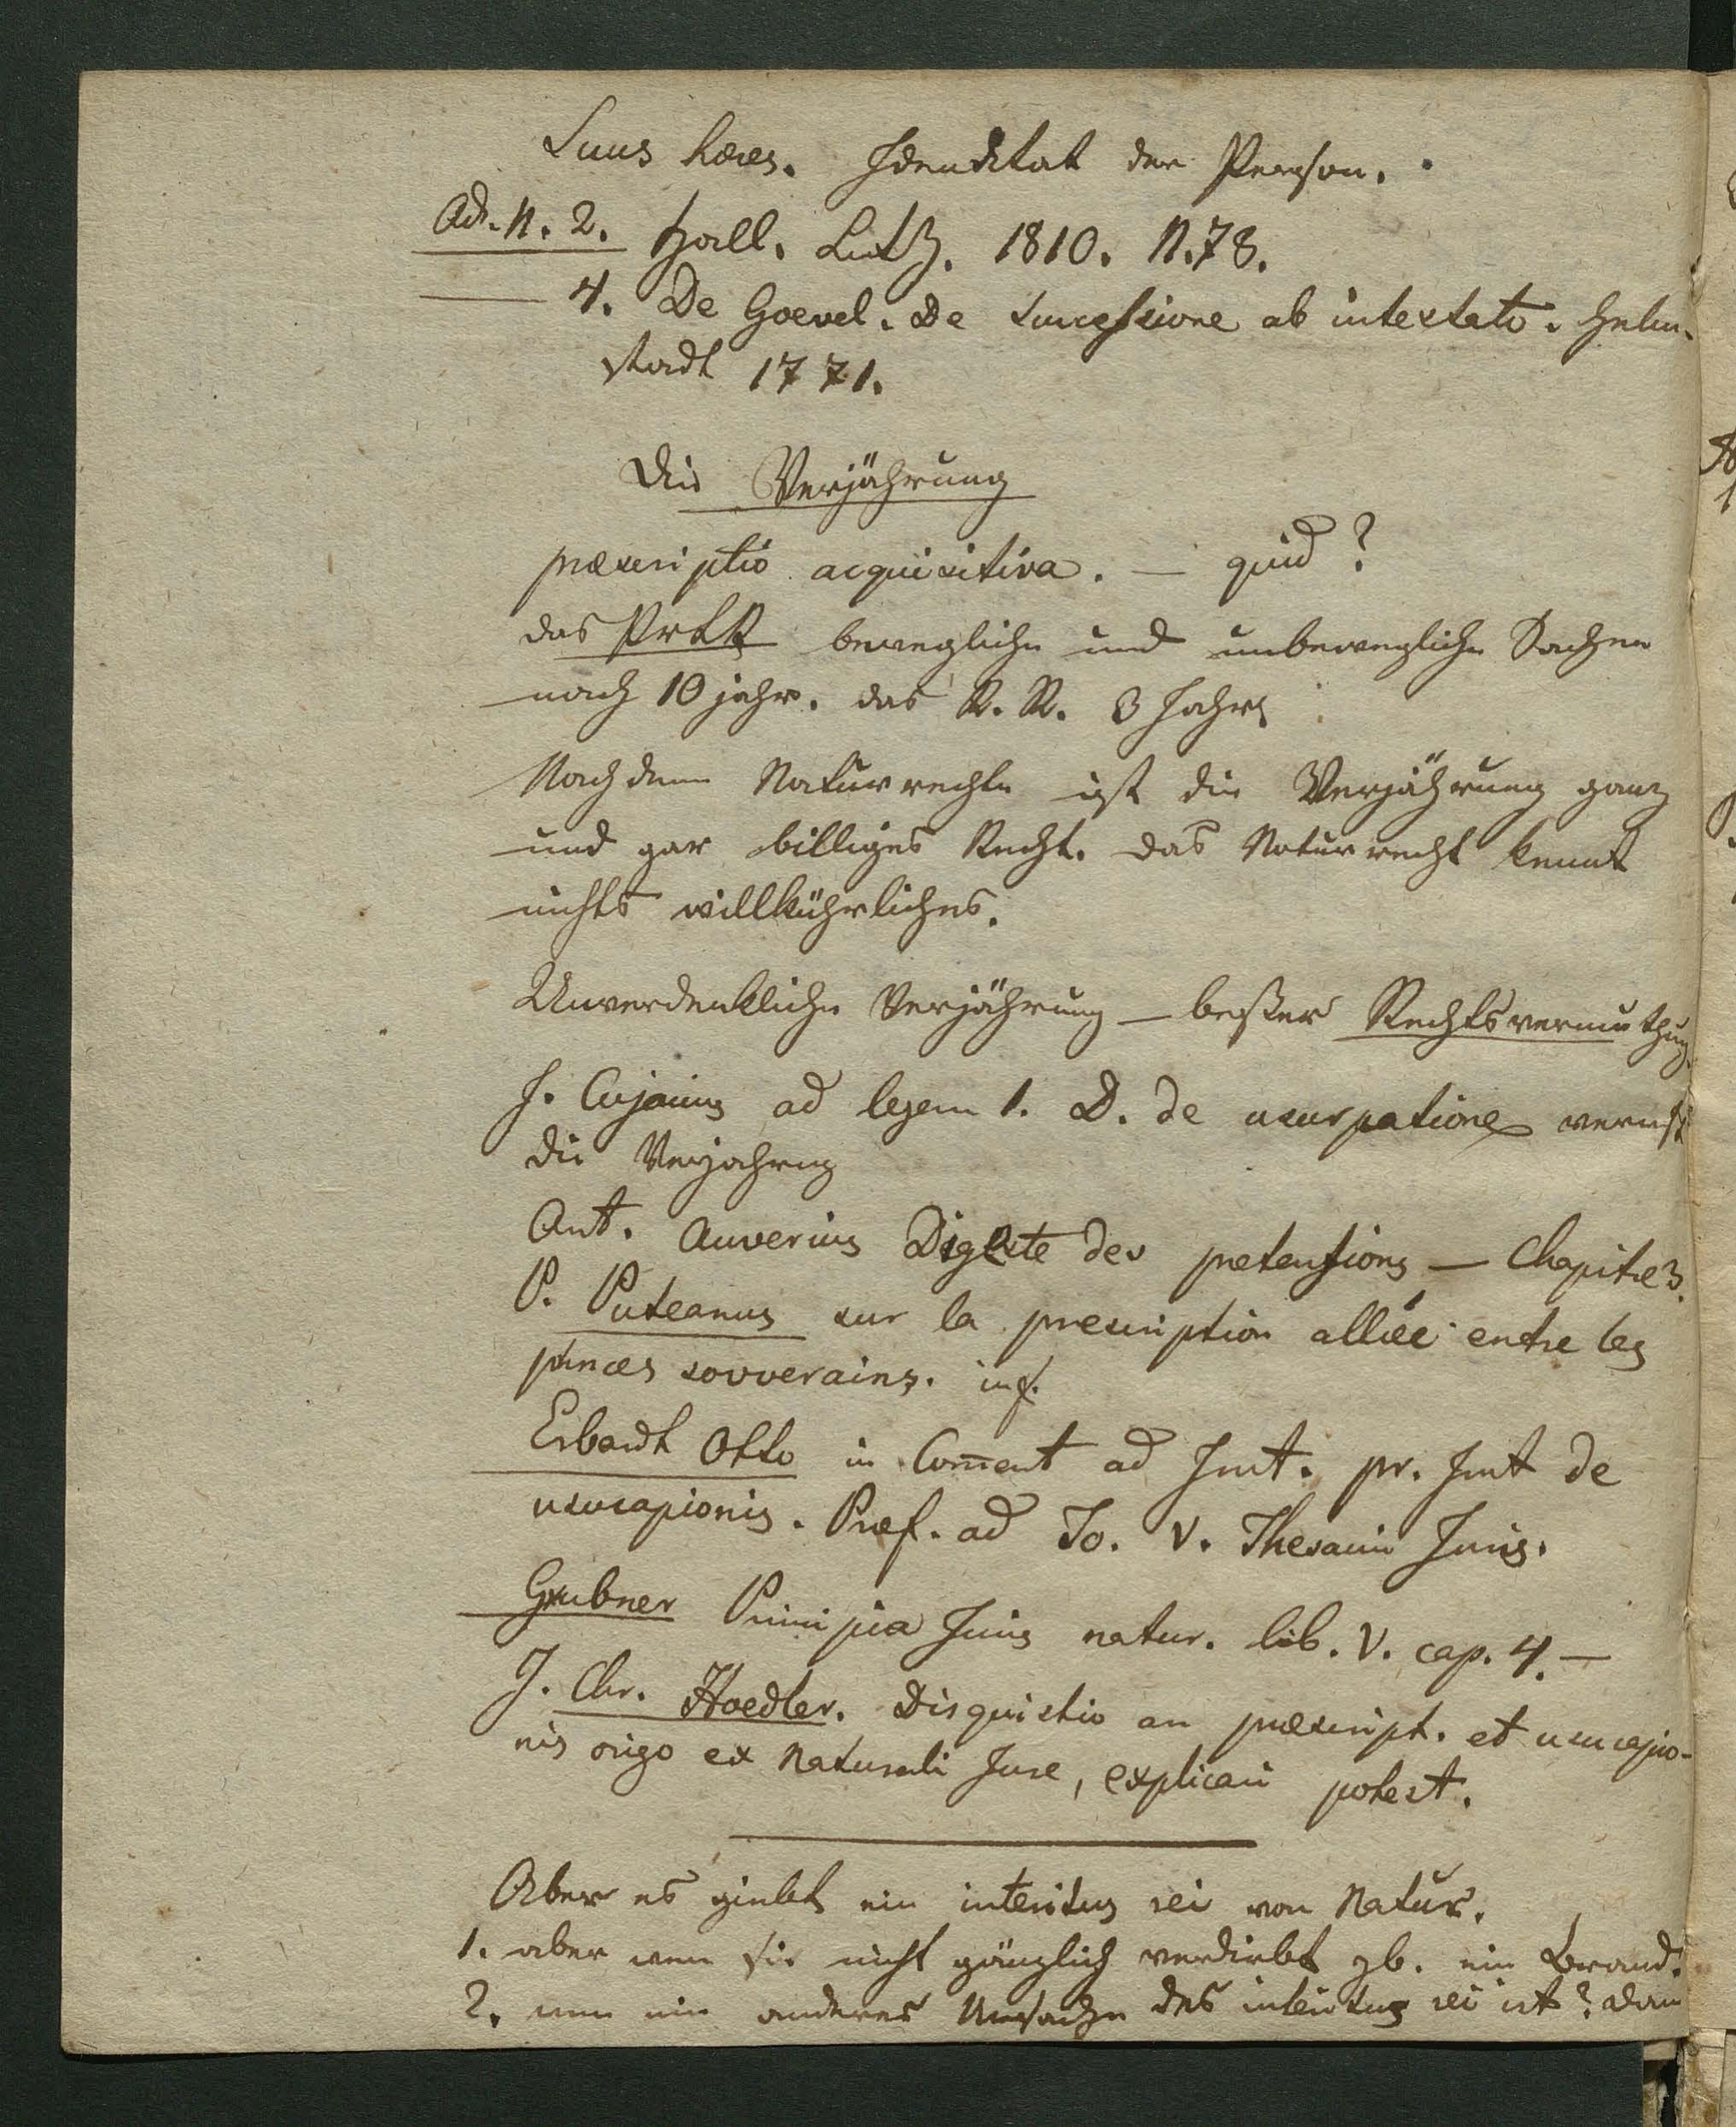 Suus hæres. Identitat der Person.
Ad. N. 2. Hall. Litz. 1810. N. 78.
4. De Goevel. De successione ab intestato. Helm-
stadt 1771.
Die Verjährung
præscriptio acquisitiva. — quid?
das PrLR bewegliche und unbewegliche Sachen
nach 10 jahr. das R. R. 3 Jahre
Nach dem Naturrechte ist die Verjährung ganz
und gar billiges Recht. das Naturrecht kennt
nichts willkührliches.
Unverdenkliche Verjährung — beßer Rechtsvermuthung.
J. Cujacius ad legem 1. D. de usurpatione verwirft
die Verjahrung
Ant. Auverius Digeste des pretensions — Chapitre 3.
P. Puteanus sur la prescription alliée entre les
princes sovverains.
Erhardt Otto in Coment ad Inst. pr. Inst de
usucapionis. Præf. ad To. V. Thesauri Juris.
Grubner Principia Juris natur. lib. V. cap. 4. —
J. Chr. Hoedler. Disquistio an præscript. et usucapio-
nis origo ex Naturali Jure, explicari potest.
Aber es giebt ein interitus rei von Natur.
1. aber wenn sie nicht gänzlich verdirbt zb. ein Brand.
2. wenn ein anderes Ursache des interitus rei ist? dann